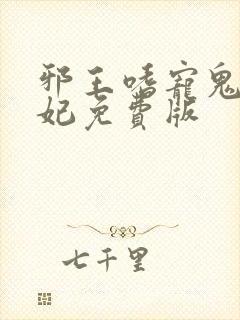 邪王嗜寵鬼
妃免費版
七千里